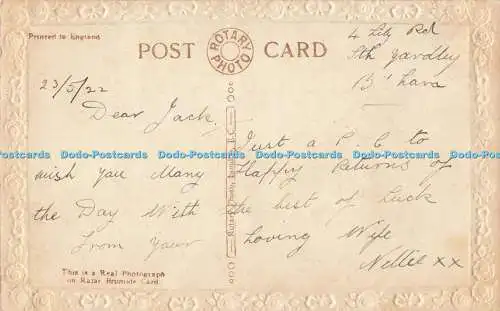 Printed in England
POST CARD
ROTARY PHOTO
4 Lily Rd
Sth Yardley
B'ham
23/5/22
Dear Jack,
Just a P.C to
wish you Many Happy Returns of
the Day With the best of Luck
From Your Loving Wife
Nellie xx
This is a Real Photograph
on Rajar Bromide Card.
Rotary Photo, London, E.C.
Dodo-Postcards Dodo-Postcards Dodo-Postcards Dodo-Postcards Dodo-Postcards